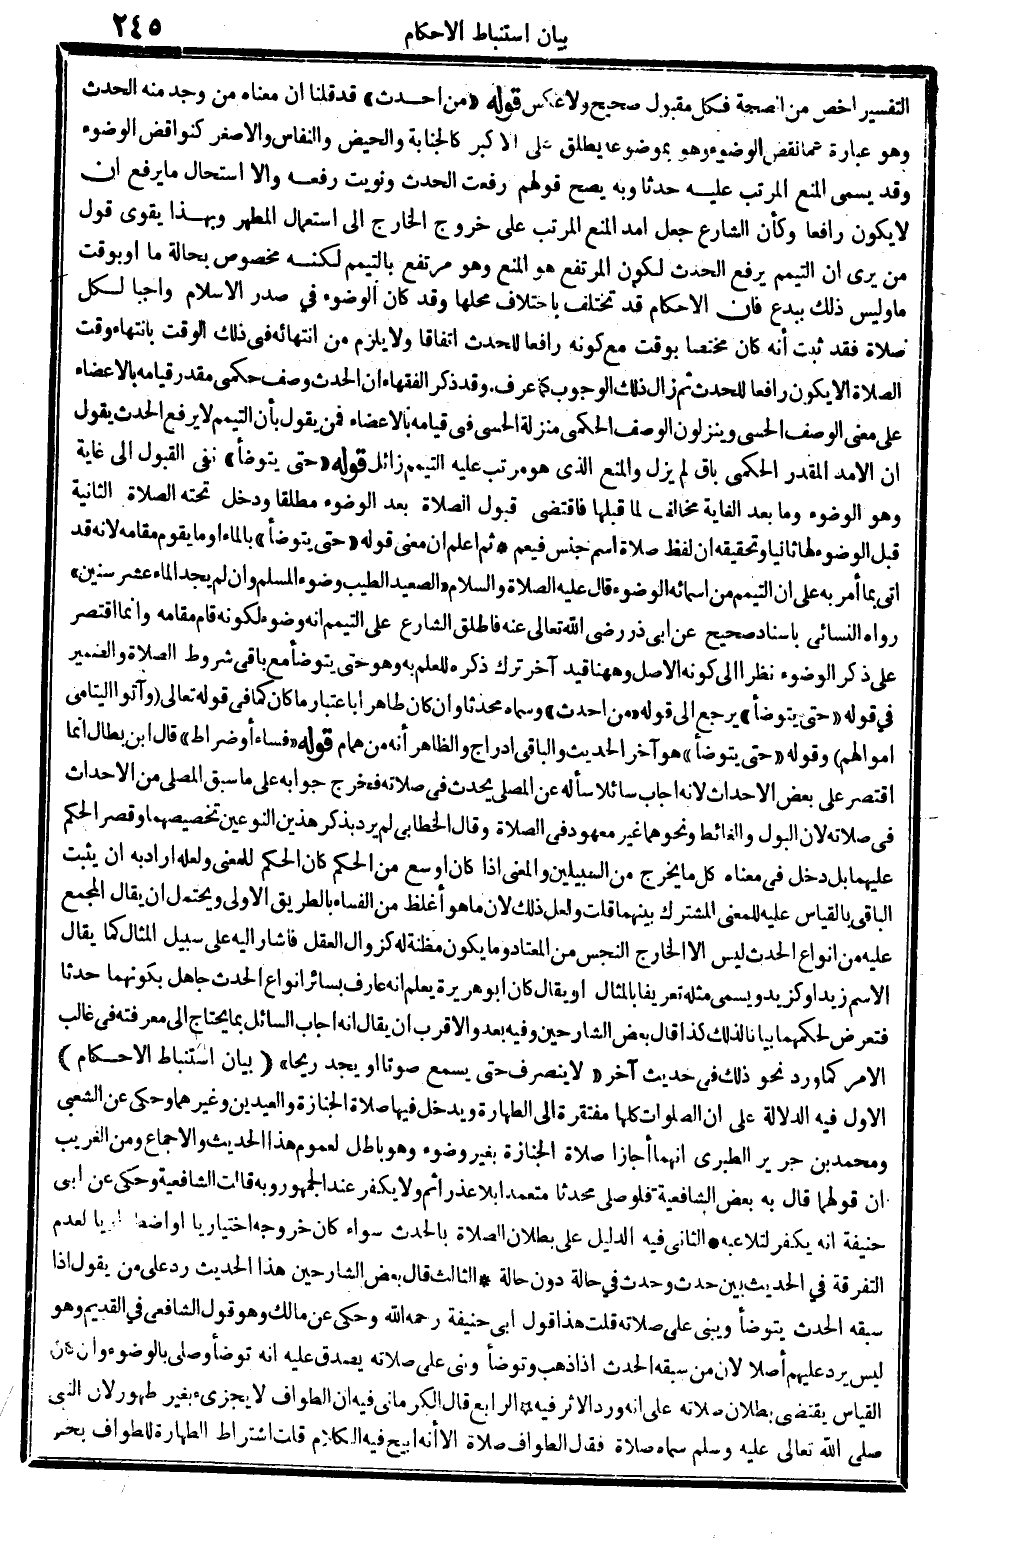 بيان استنباط الاحكام
٢٤٥
التفسير اخص من الصحة فكل مقبول صحيح ولا عكس قوله «من احدث» قد قلنا ان معناه من وجد منه الحدث
وهو عبارة عما نقض الوضوء وهو بموضوعه يطلق على الاكبر كالجنابة والحيض والنفاس والاصغر كنواقض الوضوء
وقد يسمى المنع المرتب عليه حدثا وبه يصح قولهم رفعت الحدث ونويت رفعه والا استحال ما يرفع ان
لا يكون رافعا وكأن الشارع جعل امد المنع المرتب على خروج الخارج الى استعمال المطهر وبهذا يقوى قول
من يرى ان التيمم يرفع الحدث لكون المرتفع هو المنع وهو مرتفع بالتيمم لكنه مخصوص بحالة ما او بوقت
ما وليس ذلك ببدع فان الاحكام قد تختلف باختلاف محلها وقد كان الوضوء في صدر الاسلام واجبا لكل
صلاة فقد ثبت أنه كان مختصا بوقت مع كونه رافعا للحدث اتفاقا ولا يلزم من انتهائه فى ذلك الوقت بانتهاء وقت
الصلاة الا يكون رافعا للحدث ثم زال ذلك الوجوب كما عرف. وقد ذكر الفقهاء ان الحدث وصف حكمى مقدر قيامه بالاعضاء
على معنى الوصف الحسى وينزلون الوصف الحكمى منزلة الحسى فى قيامه بالاعضاء فمن يقول بأن التيمم لا يرفع الحدث يقول
ان الامد المقدر الحكمى باق لم يزل والمنع الذى هو مرتب عليه التيمم زائل قوله «حتى يتوضأ» نفى القبول الى غاية
وهو الوضوء وما بعد الغاية مخالف لما قبلها فاقتضى قبول الصلاة بعد الوضوء مطلقا ودخل تحته الصلاة الثانية
قبل الوضوء لها ثانيا وتحقيقه ان لفظ صلاة اسم جنس فيعم * ثم اعلم ان معنى قوله «حتى يتوضأ» بالماء او ما يقوم مقامه لانه قد
اتى بما أمر به على ان التيمم من اسمائه الوضوء قال عليه الصلاة والسلام «الصعيد الطيب وضوء المسلم وان لم يجد الماء عشر سنين»
رواه النسائى باسناد صحيح عن ابى ذر رضى الله تعالى عنه فاطلق الشارع على التيمم انه وضوء لكونه قام مقامه وانما اقتصر
على ذكر الوضوء نظرا الى كونه الاصل وههنا قيد آخر ترك ذكره للعلم به وهو حتى يتوضأ مع باقى شروط الصلاة والضمير
في قوله «حتى يتوضأ» يرجع الى قوله «من احدث» وسماه محدثا وان كان طاهرا باعتبار ما كان كما فى قوله تعالى (وآتوا اليتامى
اموالهم) وقوله «حتى يتوضأ» هو آخر الحديث والباقى ادراج والظاهر أنه من همام قوله «فساء أو ضراط» قال ابن بطال انما
اقتصر على بعض الاحداث لانه اجاب سائلا سأله عن المصلى يحدث فى صلاته فخرج جوابه على ما سبق المصلى من الاحداث
فى صلاته لان البول والغائط ونحوهما غير معهود فى الصلاة وقال الخطابى لم يرد بذكر هذين النوعين تخصيصهما وقصر الحكم
عليهما بل دخل فى معناه كل ما يخرج من السبيلين والمعنى اذا كان اوسع من الحكم كان الحكم للمعنى ولعله اراد به ان يثبت
الباقى بالقياس عليه للمعنى المشترك بينهما قلت ولعل ذلك لان ما هو أغلظ من الفساء بالطريق الاولى ويحتمل ان يقال المجمع
عليه من انواع الحدث ليس الا الخارج النجس من المعتاد وما يكون مظنة له كزوال العقل فأشار اليه على سبيل المثال كما يقال
الاسم زيد او كزيد ويسمى مثله تعريفا بالمثال او يقال كان ابو هريرة يعلم انه عارف بسائر انواع الحدث جاهل بكونهما حدثا
فتعرض لحكمهما بيانا لذلك كذا قال بعض الشارحين وفيه بعد والاقرب ان يقال انه اجاب السائل بما يحتاج الى معرفته فى غالب
الامر كما ورد نحو ذلك فى حديث آخر «لا ينصرف حتى يسمع صوتا او يجد ريحا» (بيان استنباط الاحكام)
الاول فيه الدلالة على ان الصلوات كلها مفتقرة الى الطهارة ويدخل فيها صلاة الجنازة والعيدين وغيرهما وحكى عن الشعبى
ومحمد بن جرير الطبرى انهما أجازا صلاة الجنازة بغير وضوء وهو باطل لعموم هذا الحديث والاجماع ومن الغريب
ان قولهما قال به بعض الشافعية فلو صلى محدثا متعمدا بلا عذر اثم ولا يكفر عند الجمهور وبه قالت الشافعية وحكى عن ابى
حنيفة انه يكفر لتلاعبه * الثانى فيه الدليل على بطلان الصلاة بالحدث سواء كان خروجه اختياريا او اضطراريا لعدم
التفرقة في الحديث بين حدث وحدث في حالة دون حالة * الثالث قال بعض الشارحين هذا الحديث رد على من يقول اذا
سبقه الحدث يتوضأ ويبنى على صلاته قلت هذا قول ابى حنيفة رحمه الله وحكى عن مالك وهو قول الشافعى في القديم وهو
ليس يرد عليهم أصلا لان من سبقه الحدث اذا ذهب وتوضأ وبنى على صلاته يصدق عليه انه توضأ وصلى بالوضوء وان كان
القياس يقتضى بطلان صلاته على انه ورد الاثر فيه * الرابع قال الكرمانى فيه ان الطواف لا يجزىء بغير طهور لان النبى
صلى الله تعالى عليه وسلم سماه صلاة فقال الطواف صلاة الا أنه ابيح فيه الكلام قلت اشتراط الطهارة للطواف بخبر